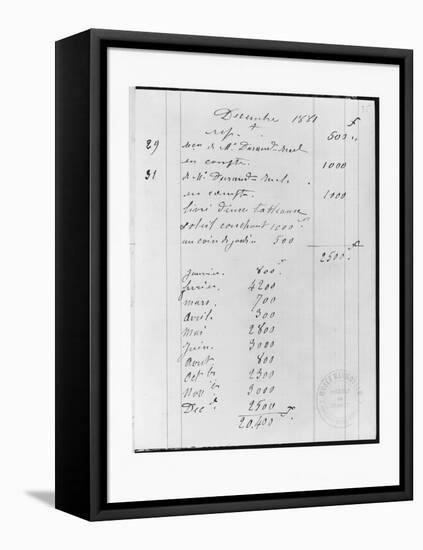 Decembre 1881 f
rep. + 500 "
29 recu de Mr Durand-Ruel
en compte. 1000
31 de Mr Durand-Ruel.
en compte. 1000
livré deux tableaux
soleil couchant 1000
un coin de jardin 500
2500 f
janvier. 800 f
fevrier. 4200
mars. 700
Avril. 300
Mai 2800
Juin. 3000
Aout. 800
Oct bre 2300
Nov bre 3000
Dec bre 2500
20,400 f.